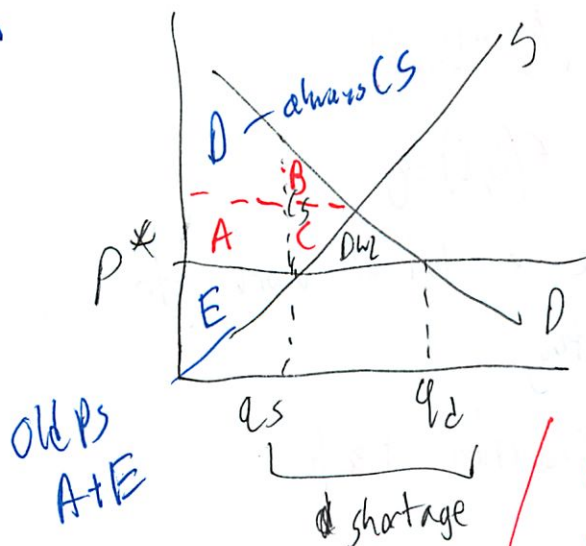 S
D - always CS
B
CS
A
C
DWL
P*
E
D
qs
qd
Old PS
A+E
shortage